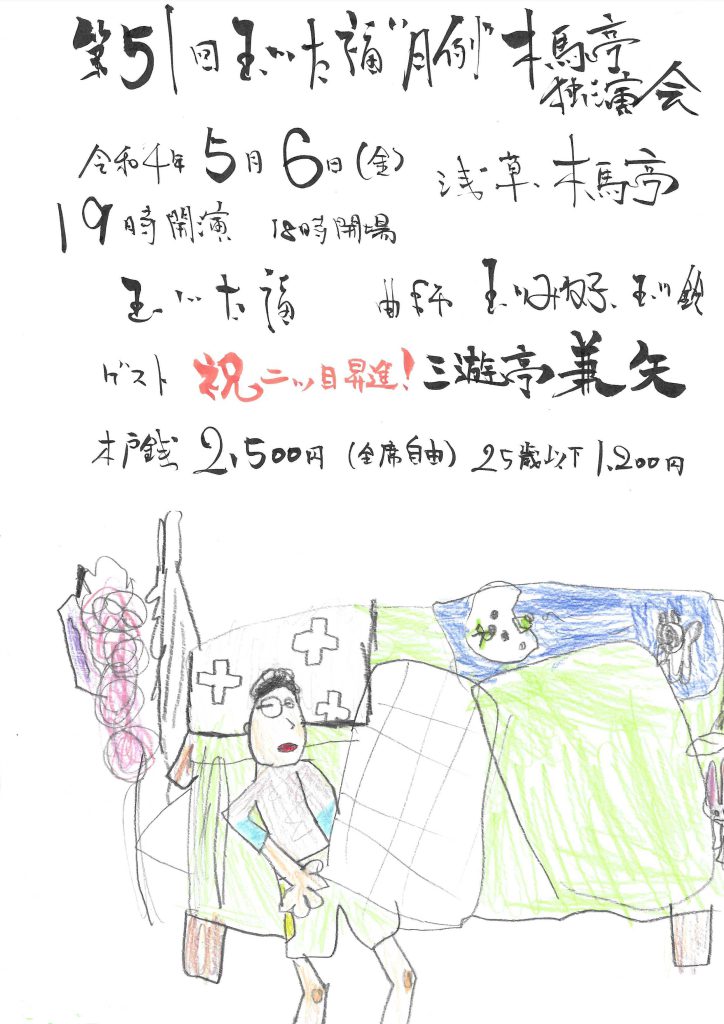 第51回 玉川太福"月例"木馬亭
独演会
令和4年5月6日(金) 浅草、木馬亭
19時開演 18時開場
玉川太福 曲師 玉川みね子、玉川鈴
ゲスト 祝二ツ目昇進!三遊亭兼矢
木戸銭 2,500円(全席自由)25歳以下1,200円